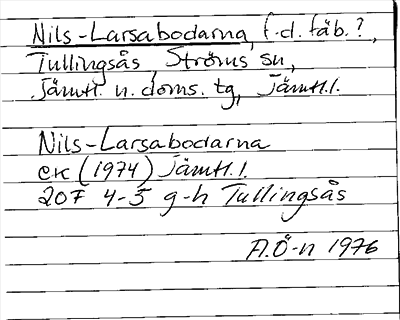 Nils-Larsabodarna, f.d. fäb.?,
Tullingsås Ströms sn,
Jämtl. n. doms. tg, Jämtl.l.
Nils-Larsabodarna
ek (1974) Jämtl.l.
20F 4-5 g-h Tullingsås
A.Ö-n 1976